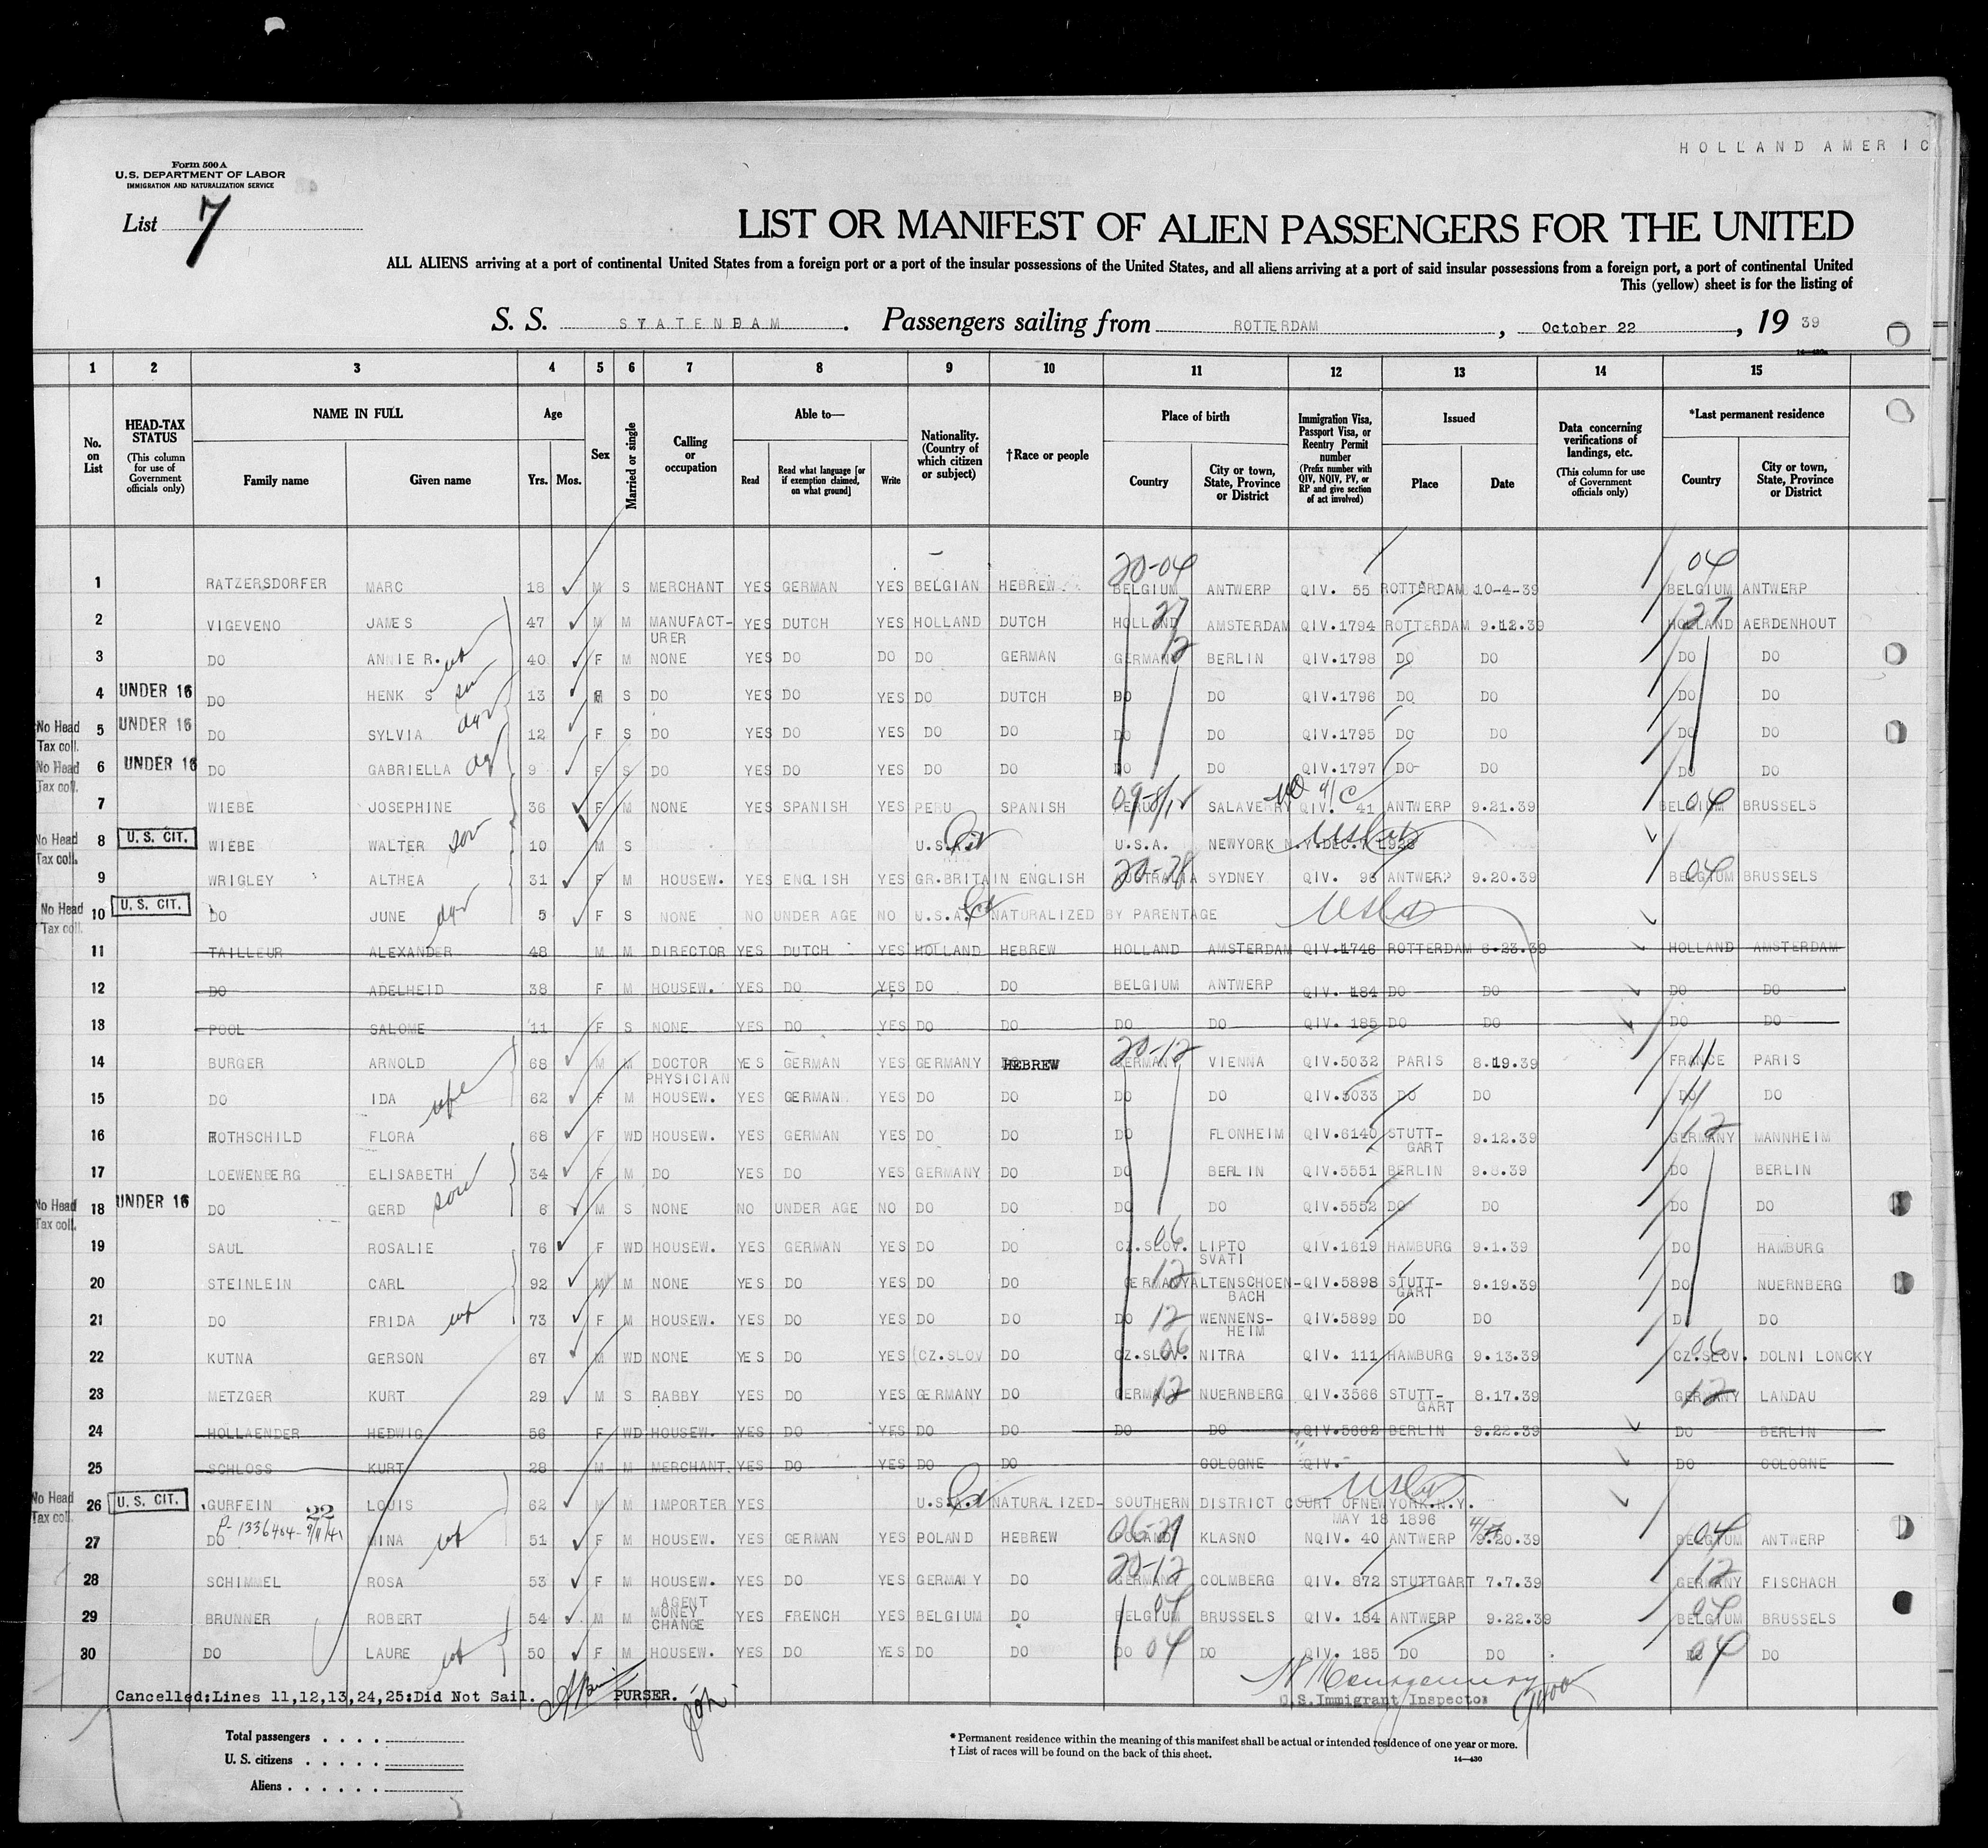 HOLLAND AMERIC
Form 500 A
U.S. DEPARTMENT OF LABOR
IMMIGRATION AND NATURALIZATION SERVICE
List 7
LIST OR MANIFEST OF ALIEN PASSENGERS FOR THE UNITED
ALL ALIENS arriving at a port of continental United States from a foreign port or a port of the insular possessions of the United States, and all aliens arriving at a port of said insular possessions from a foreign port, a port of continental United
This (yellow) sheet is for the listing of
S. S. STATENDAM. Passengers sailing from ROTTERDAM, October 22, 19 39
14—430a
1 2 3 4 5 6 7 8 9 10 11 12 13 14 15
No. on List
HEAD-TAX STATUS
(This column for use of Government officials only)
NAME IN FULL
Family name Given name
Age
Yrs. Mos.
Sex
Married or single
Calling or occupation
Able to—
Read
Read what language [or if exemption claimed, on what ground]
Write
Nationality. (Country of which citizen or subject)
†Race or people
Place of birth
Country
City or town, State, Province or District
Immigration Visa, Passport Visa, or Reentry Permit number
(Prefix number with QIV, NQIV, PV, or RP and give section of act involved)
Issued
Place Date
Data concerning verifications of landings, etc.
(This column for use of Government officials only)
*Last permanent residence
Country
City or town, State, Province or District
20-04 04
1 RATZERSDORFER MARC 18 M S MERCHANT YES GERMAN YES BELGIAN HEBREW BELGIUM ANTWERP QIV. 55 ROTTERDAM 10-4-39 BELGIUM ANTWERP
2 VIGEVENO JAMES 47 M M MANUFACT-URER YES DUTCH YES HOLLAND DUTCH HOLLAND 27 AMSTERDAM QIV.1794 ROTTERDAM 9.12.39 HOLLAND 27 AERDENHOUT
3 DO ANNIE R. 40 F M NONE YES DO DO DO GERMAN GERMANY 12 BERLIN QIV.1798 DO DO DO DO
4 UNDER 16 DO HENK S 13 S DO YES DO YES DO DUTCH DO DO QIV.1796 DO DO DO DO
No Head Tax coll. 5 UNDER 16 DO SYLVIA 12 F S DO YES DO YES DO DO DO DO QIV.1795 DO DO DO DO
No Head Tax coll. 6 UNDER 16 DO GABRIELLA 9 F S DO YES DO YES DO DO DO DO QIV.1797 DO DO DO DO
7 WIEBE JOSEPHINE 36 F M NONE YES SPANISH YES PERU SPANISH PERU SALAVERRY QIV. 41 ANTWERP 9.21.39 BELGIUM 04 BRUSSELS
No Head Tax coll. 8 U. S. CIT. WIEBE WALTER son 10 M S U.S.A. U.S.A. NEWYORK N.Y.DEC.7 1928
9 WRIGLEY ALTHEA 31 F M HOUSEW. YES ENGLISH YES GR.BRITAIN ENGLISH AUSTRALIA SYDNEY QIV. 96 ANTWERP 9.20.39 BELGIUM 04 BRUSSELS
No Head Tax coll. 10 U. S. CIT. DO JUNE 5 F S NONE NO UNDER AGE NO U.S.A. NATURALIZED BY PARENTAGE
11 TAILLEUR ALEXANDER 48 M M DIRECTOR YES DUTCH YES HOLLAND HEBREW HOLLAND AMSTERDAM QIV.1746 ROTTERDAM 6-23.39 HOLLAND AMSTERDAM
12 DO ADELHEID 38 F M HOUSEW. YES DO YES DO DO BELGIUM ANTWERP QIV. 184 DO DO DO DO
13 POOL SALOME 11 F S NONE YES DO YES DO DO DO DO QIV. 185 DO DO DO DO
14 BURGER ARNOLD 68 M M DOCTOR PHYSICIAN YES GERMAN YES GERMANY HEBREW 20-12 GERMANY VIENNA QIV.5032 PARIS 8.19.39 FRANCE 11 PARIS
15 DO IDA wife 62 F M HOUSEW. YES GERMAN YES DO DO DO DO QIV.5033 DO DO DO 11 DO
16 ROTHSCHILD FLORA 68 F WD HOUSEW. YES GERMAN YES DO DO DO FLONHEIM QIV.6140 STUTT-GART 9.12.39 GERMANY 12 MANNHEIM
17 LOEWENBERG ELISABETH 34 F M DO YES DO YES GERMANY DO DO BERLIN QIV.5551 BERLIN 9.8.39 DO BERLIN
No Head Tax coll. 18 UNDER 16 DO GERD son 6 M S NONE NO UNDER AGE NO DO DO DO DO QIV.5552 DO DO DO DO
19 SAUL ROSALIE 76 F WD HOUSEW. YES GERMAN YES DO DO CZ.SLOV. 06 LIPTO SVATI QIV.1619 HAMBURG 9.1.39 DO HAMBURG
20 STEINLEIN CARL 92 M M NONE YES DO YES DO DO GERMANY 12 ALTENSCHOEN-BACH QIV.5898 STUTT-GART 9.19.39 DO NUERNBERG
21 DO FRIDA 73 F M HOUSEW. YES DO YES DO DO DO 12 WENNENS-HEIM QIV.5899 DO DO D DO
22 KUTNA GERSON 67 M WD NONE YES DO YES CZ.SLOV DO CZ.SLOV. 06 NITRA QIV. 111 HAMBURG 9.13.39 CZ.SLOV. 06 DOLNI LONCKY
23 METZGER KURT 29 M S RABBY YES DO YES GERMANY DO GERMANY 12 NUERNBERG QIV.3566 STUTT-GART 8.17.39 GERMANY 12 LANDAU
24 HOLLAENDER HEDWIG 56 F WD HOUSEW. YES DO YES DO DO DO DO QIV.5662 BERLIN 9.22.39 DO BERLIN
25 SCHLOSS KURT 28 M M MERCHANT. YES DO YES DO DO COLOGNE QIV.- DO COLOGNE
No Head Tax coll. 26 U. S. CIT. GURFEIN LOUIS 62 M M IMPORTER YES U.S.A. NATURALIZED- SOUTHERN DISTRICT COURT OFNEWYORK.N.Y. MAY 18 1896
27 DO MINA 51 F M HOUSEW. YES GERMAN YES POLAND HEBREW POLAND KLASNO NQIV. 40 ANTWERP 9.20.39 BELGIUM 04 ANTWERP
28 SCHIMMEL ROSA 53 F M HOUSEW. YES DO YES GERMANY DO 20-12 GERMANY COLMBERG QIV. 872 STUTTGART 7.7.39 GERMANY 12 FISCHACH
29 BRUNNER ROBERT 54 M M AGENT MONEY CHANGE YES FRENCH YES BELGIUM DO BELGIUM 04 BRUSSELS QIV. 184 ANTWERP 9.22.39 BELGIUM 04 BRUSSELS
30 DO LAURE 50 F M HOUSEW. YES DO YES DO DO DO 04 DO QIV. 185 DO DO 04 DO
Cancelled:Lines 11,12,13,24,25:Did Not Sail. PURSER. U.S.Immigrant Inspector
Total passengers . . . .
U. S. citizens . . . . .
Aliens . . . . . .
* Permanent residence within the meaning of this manifest shall be actual or intended residence of one year or more.
† List of races will be found on the back of this sheet.
14—430